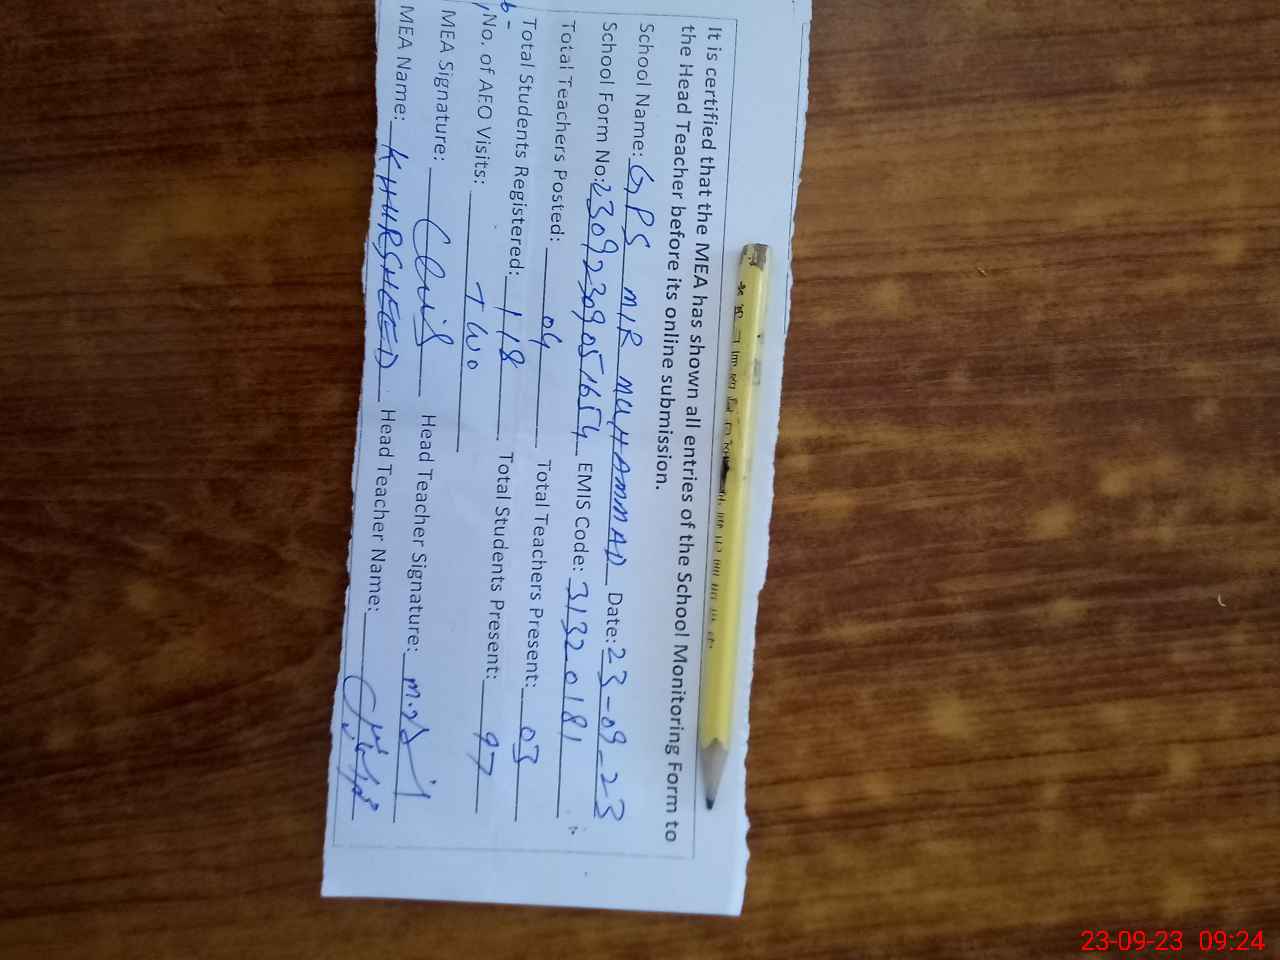 It is certified that the MEA has shown all entries of the School Monitoring Form to
the Head Teacher before its online submission.
School Name: GPS MIR MUHAMMAD Date: 23-09-23
School Form No: 2309230905 1654 EMIS Code: 31320181
Total Teachers Posted: 04 Total Teachers Present: 03
Total Students Registered: 118 Total Students Present: 97
No. of AEO Visits: Two
MEA Signature: Head Teacher Signature:
MEA Name: KHURSHEED Head Teacher Name:
23-09-23 09:24